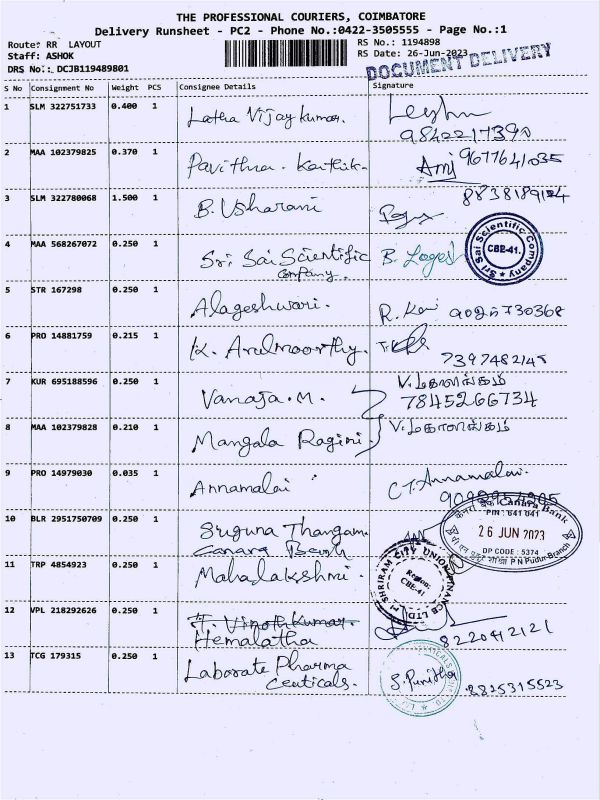 THE PROFESSIONAL COURIERS, COIMBATORE
Delivery Runsheet - PC2 - Phone No.:0422-3505555 - Page No.:1
Route: RR LAYOUT
RS No.: 1194898
Staff: ASHOK
RS Date: 26-Jun-2023
DRS No.: DCJB119489801
DOCUMENT DELIVERY
S No Consignment No Weight PCS Consignee Details Signature
1 SLM 322751733 0.400 1 Latha Vijaykumar.
2 MAA 102379825 0.370 1 Pavithra. Karthik. 9677641035
3 SLM 322780068 1.500 1 B. Usharani 8838189124
4 MAA 568267072 0.250 1 Sri Sai Scientific Company. B. Loges
Sri Sai Scientific Company CBE-41.
5 STR 167298 0.250 1 Alageshwari.
6 PRO 14881759 0.215 1 K. Arulmoorthy. 7397482148
7 KUR 695188596 0.250 1 Vanaja.M. 7845266734
8 MAA 102379828 0.210 1 Mangala Ragini
9 PRO 14979030 0.035 1 Annamalai C.T. Annamalai.
10 BLR 2951750709 0.250 1 Suguna Thangam.
Canara Bank
Canara Bank
PIN: 641 041
26 JUN 2023
DP CODE: 5374
P N Pudur-Branch
11 TRP 4854923 0.250 1 Mahalakshmi.
SHRIRAM CITY UNION FINANCE LTD
Region: CBE-41
12 VPL 218292626 0.250 1 Vinothkumar.
Hemalatha 8220412121
13 TCG 179315 0.250 1 Laborate Pharma
Ceuticals. S. Punitha 8825315523